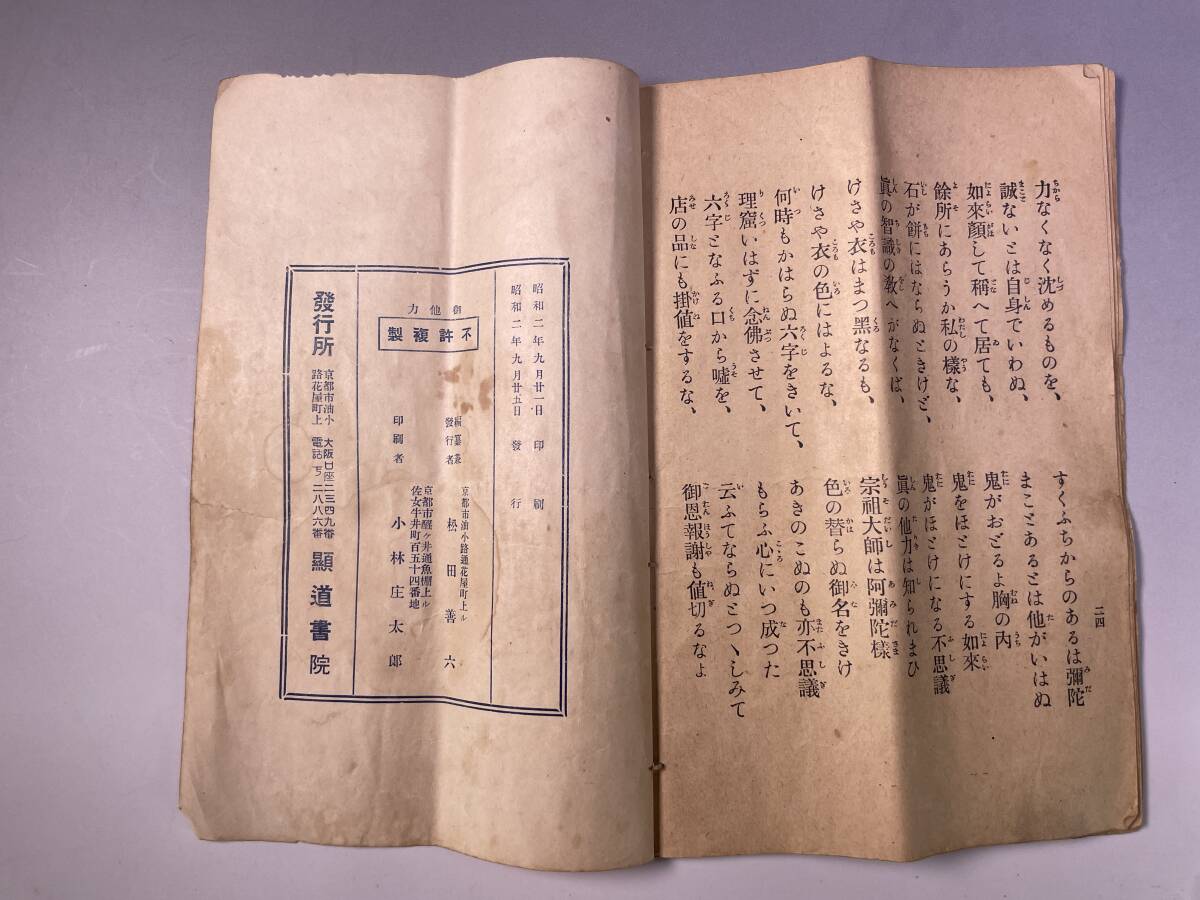 二四
力なくなく沈めるものを、 すくふちからのあるは彌陀
誠ないとは自身でいわぬ、 まことあるとは他がいはぬ
如來顏して稱へて居ても、 鬼がおどるよ胸の內
餘所にあらうか私の樣な、 鬼をほとけにする如來
石が餅にはならぬときけど、 鬼がほとけになる不思議
眞の智識の敎へがなくば、 眞の他力は知られまひ
けさや衣はまつ黑なるも、 宗祖大師は阿彌陀樣
けさや衣の色にはよるな、 色の替らぬ御名をきけ
何時もかはらぬ六字をきいて、 あきのこぬのも亦不思議
理窟いはずに念佛させて、 もらふ心にいつ成つた
六字となふる口から嘘を、 云ふてならぬとつゝしみて
店の品にも掛値をするな、 御恩報謝も値切るなよ
昭和二年九月廿一日 印刷
昭和二年九月廿五日 發行
御他力
不許複製
編纂兼發行者
京都市油小路通花屋町上ル
松田善六
印刷者
京都市醒ヶ井通魚棚上ル
佐女牛井町百五十四番地
小林庄太郎
發行所
京都市油小
路花屋町上
大阪口座二三四九番
電話下二八八六番
顯道書院